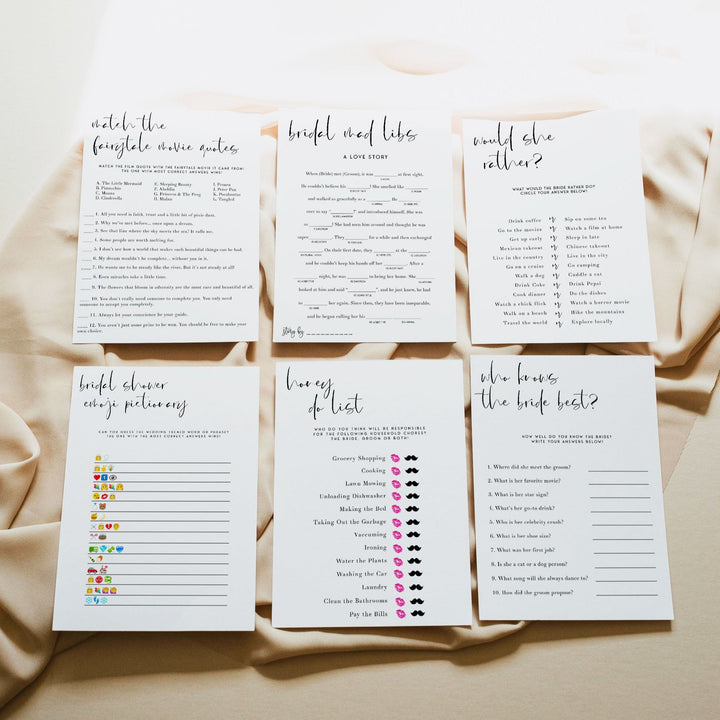 match the
fairytale movie quotes
MATCH THE FILM QUOTE WITH THE FAIRYTALE MOVIE IT CAME FROM!
THE ONE WITH THE MOST CORRECT ANSWERS WINS!
A. The Little Mermaid
B. Pinocchio
C. Moana
D. Cinderella
E. Sleeping Beauty
F. Aladdin
G. Princess & The Frog
H. Mulan
I. Frozen
J. Peter Pan
K. Pocahontas
L. Tangled
1. All you need is faith, trust and a little bit of pixie dust.
2. Why we've met before... once upon a dream.
3. See that line where the sky meets the sea? It calls me.
4. Some people are worth melting for.
5. I don't see how a world that makes such beautiful things can be bad.
6. My dream wouldn't be complete... without you in it.
7. He wants me to be steady like the river. But it's not steady at all!
8. Even miracles take a little time.
9. The flowers that bloom in adversity are the most rare and beautiful of all.
10. You don't really need someone to complete you. You only need
someone to accept you completely.
11. Always let your conscience be your guide.
12. You aren't just some prize to be won. You should be free to make your
own choice.
bridal mad libs
A LOVE STORY
When (Bride) met (Groom), it was ______ at first sight,
He couldn't believe his ______! She smelled like ______
and walked as gracefully as a ______. He leaned
over to say "______" and introduced himself. She was
______! She had seen him around and thought he was
super ______. They ______ for a while and then exchanged
______. On their first date, they ______ at the ______
and he couldn't keep his hands off her ______. After a
______ night, he was ______ to bring her home. She
looked at him and said "______", and he just knew, he had
to ______ her again. Since then, they have been inseparable,
and he began calling her his ______ ______
Story by
would she
rather?
WHAT WOULD THE BRIDE RATHER DO?
CIRCLE YOUR ANSWER BELOW!
Drink coffee or Sip on some tea
Go to the movies or Watch a film at home
Get up early or Sleep in late
Mexican takeout or Chinese takeout
Live in the country or Live in the city
Go on a cruise or Go camping
Walk a dog or Cuddle a cat
Drink Coke or Drink Pepsi
Cook dinner or Do the dishes
Watch a chick flick or Watch a horror movie
Walk on a beach or Hike the mountains
Travel the world or Explore locally
bridal shower
emoji pictionary
CAN YOU GUESS THE WEDDING THEMED WORD OR PHRASE?
THE ONE WITH THE MOST CORRECT ANSWERS WINS!
honey
do list
WHO DO YOU THINK WILL BE RESPONSIBLE
FOR THE FOLLOWING HOUSEHOLD CHORES?
THE BRIDE, GROOM OR BOTH!
Grocery Shopping
Cooking
Lawn Mowing
Unloading Dishwasher
Making the Bed
Taking Out the Garbage
Vaccuming
Ironing
Water the Plants
Washing the Car
Laundry
Clean the Bathrooms
Pay the Bills
who knows
the bride best?
HOW WELL DO YOU KNOW THE BRIDE?
WRITE YOUR ANSWERS BELOW!
1. Where did she meet the groom?
2. What is her favorite movie?
3. What is her star sign?
4. What's her go-to drink?
5. Who is her celebrity crush?
6. What is her shoe size?
7. What was her first job?
8. Is she a cat or a dog person?
9. What song will she always dance to?
10. How did the groom propose?